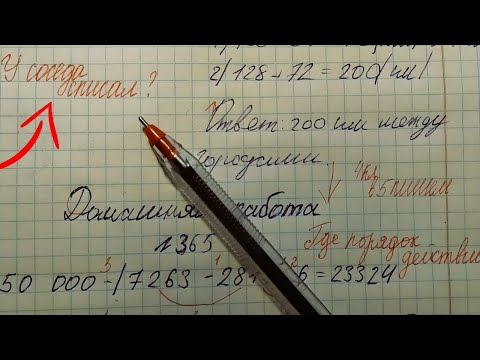 2/ 128 + 72 = 200 (км)
У соседа
списал?
Ответ: 200 км между
городами.
4 кл
в 5 пишем
Домашняя работа
1365
Где порядок
действий
50 000 - (7263 - 28 6 = 23324
3 1 2